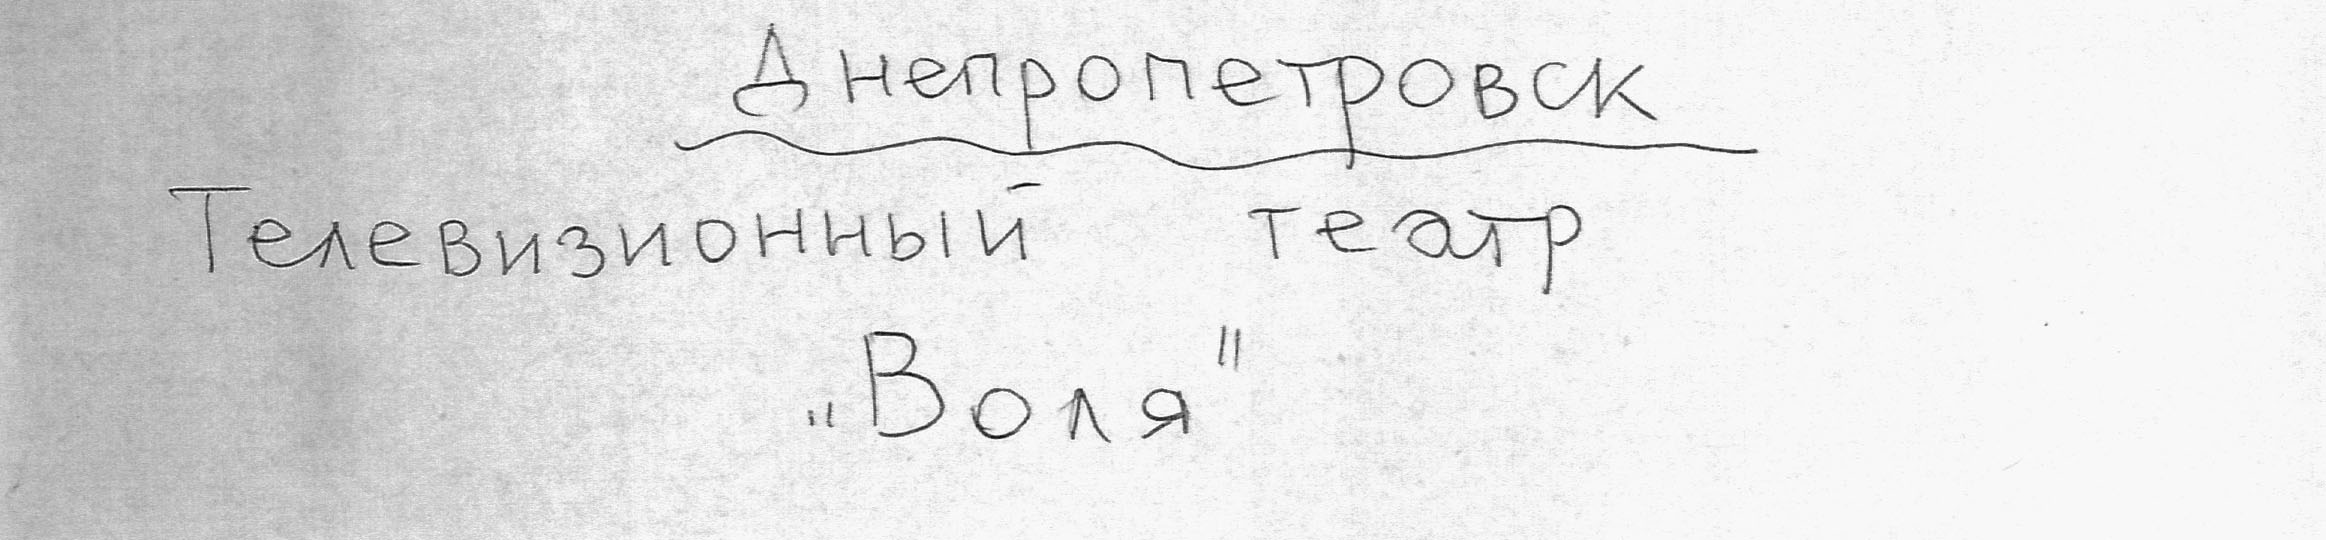 Днепропетровск
Телевизионный театр
„Воля"